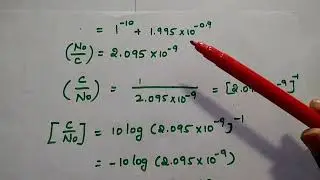 = 1^-10 + 1.995 × 10^-0.9
(No/C) = 2.095 × 10^-9
(C/No) = 1/(2.095 × 10^-9) = [2.0 -9]^-1
[C/No] = 10 log (2.095 × 10^-9)^-1
= -10 log (2.095 × 10^-9)